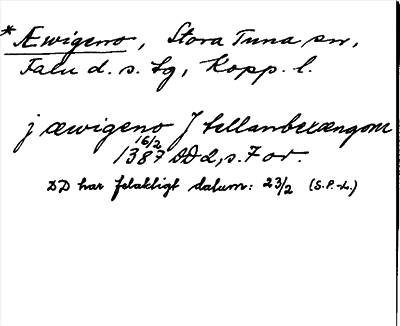 * Æwigeno, Stora Tuna sn,
Falu d. s. lg, Kopp. l.
j æwigeno J tellanbexængom
16/2
1387 DD 2, s. 7 or.
DD har felaktigt datum: 23/2 (S.P.-L.)